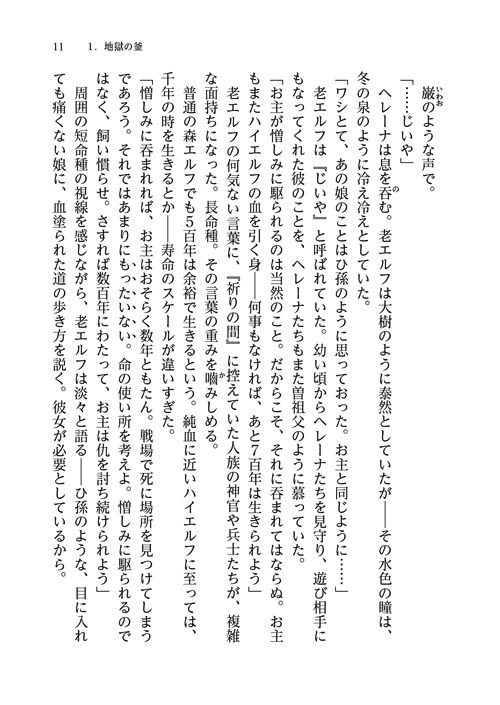 11　1．地獄の釜
巌のような声で。
「……じいや」
ヘレーナは息を呑む。老エルフは大樹のように泰然としていたが――その水色の瞳は、
冬の泉のように冷え冷えとしていた。
「ワシとて、あの娘のことはひ孫のように思っておった。お主と同じように……」
老エルフは『じいや』と呼ばれていた。幼い頃からヘレーナたちを見守り、遊び相手に
もなってくれた彼のことを、ヘレーナたちもまた曽祖父のように慕っていた。
「お主が憎しみに駆られるのは当然のこと。だからこそ、それに呑まれてはならぬ。お主
もまたハイエルフの血を引く身――何事もなければ、あと７百年は生きられよう」
老エルフの何気ない言葉に、『祈りの間』に控えていた人族の神官や兵士たちが、複雑
な面持ちになった。長命種。その言葉の重みを嚙みしめる。
普通の森エルフでも５百年は余裕で生きるという。純血に近いハイエルフに至っては、
千年の時を生きるとか――寿命のスケールが違いすぎた。
「憎しみに呑まれれば、お主はおそらく数年ともたん。戦場で死に場所を見つけてしまう
であろう。それではあまりにもったいない。命の使い所を考えよ。憎しみに駆られるので
はなく、飼い慣らせ。さすれば数百年にわたって、お主は仇を討ち続けられよう」
周囲の短命種の視線を感じながら、老エルフは淡々と語る――ひ孫のような、目に入れ
ても痛くない娘に、血塗られた道の歩き方を説く。彼女が必要としているから。